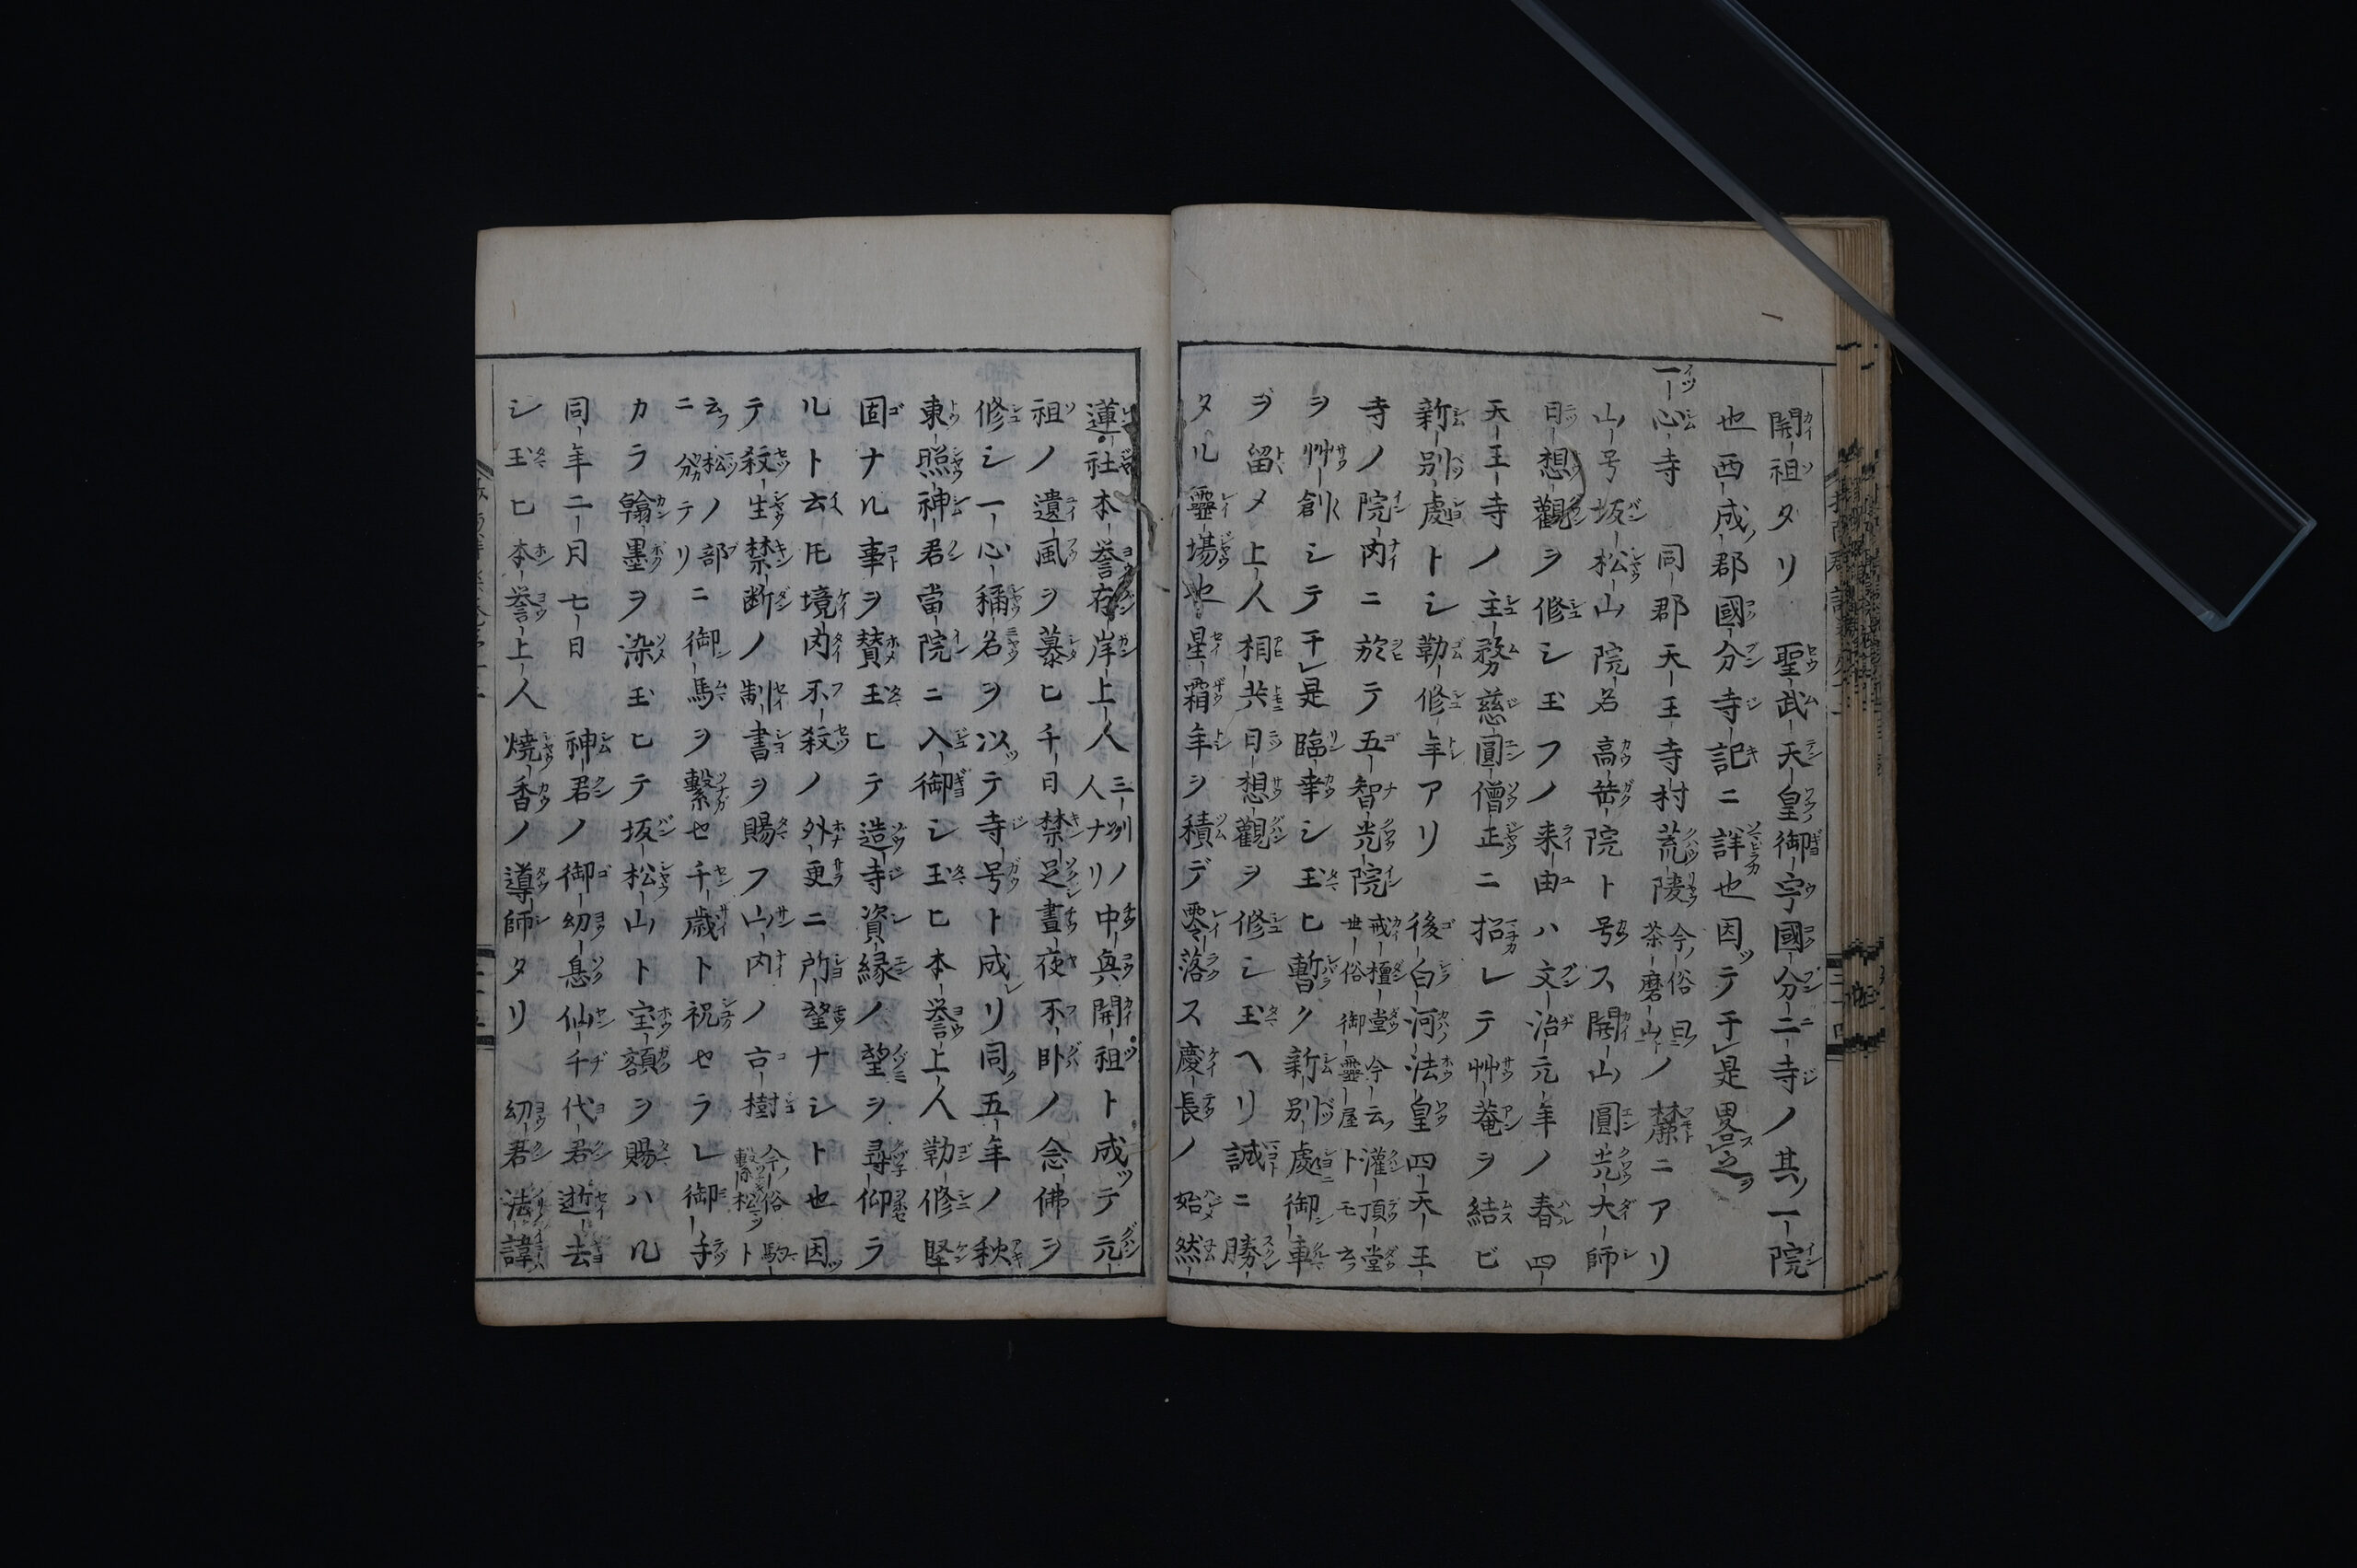 開祖タリ　聖武天皇御宇國分二寺ノ其ノ一院
也西成ノ郡國分寺記ニ詳也因ッテ于是畧之
一心寺　同郡天王寺村荒陵今ノ俗曰茶磨山ノ麓ニアリ
山号坂松山院名高岳院ト号ス開山圓光大師
日想觀ヲ修シ玉フノ来由ハ文治元年ノ春四
天王寺ノ主務慈圓僧正ニ招レテ艸菴ヲ結ビ
新別處トシ勤修年アリ　後白河法皇四天王
寺ノ院内ニ於テ五智光院戒檀堂今云フ灌頂堂世俗御霊屋トモ云フ
ヲ艸創シテ于是臨幸シ玉ヒ暫ク新別處御車
ヲ留メ上人相共日想觀ヲ修シ玉ヘリ誠ニ勝
タル靈場也星霜年ヲ積デ零落ス慶長ノ始然
蓮社本誉存岸上人三州ノ人ナリ中興開祖ト成ッテ元
祖ノ遺風ヲ慕ヒ千日禁足晝夜不卧ノ念佛ヲ
修シ一心稱名ヲ以ッテ寺号ト成レリ同ク五年ノ秋
東照神君當院ニ入御シ玉ヒ本誉上人勤修堅
固ナル事ヲ賛玉ヒテ造寺資縁ノ望ヲ尋仰ラ
ルト云ヒ境内不殺ノ外更ニ所望ナシト也因ッ
テ殺生禁断ノ制書ヲ賜フ山内ノ古樹今ノ俗駒繋松ト
云フ松ノ部ニ分テリニ御馬ヲ繫セ千歳ト祝セラレ御手
カラ翰墨ヲ染玉ヒテ坂松山ト宝額ヲ賜ハル
同年二月七日　神君ノ御幼息仙千代君逝去
シ玉ヒ本誉上人焼香ノ導師タリ　幼君法諱